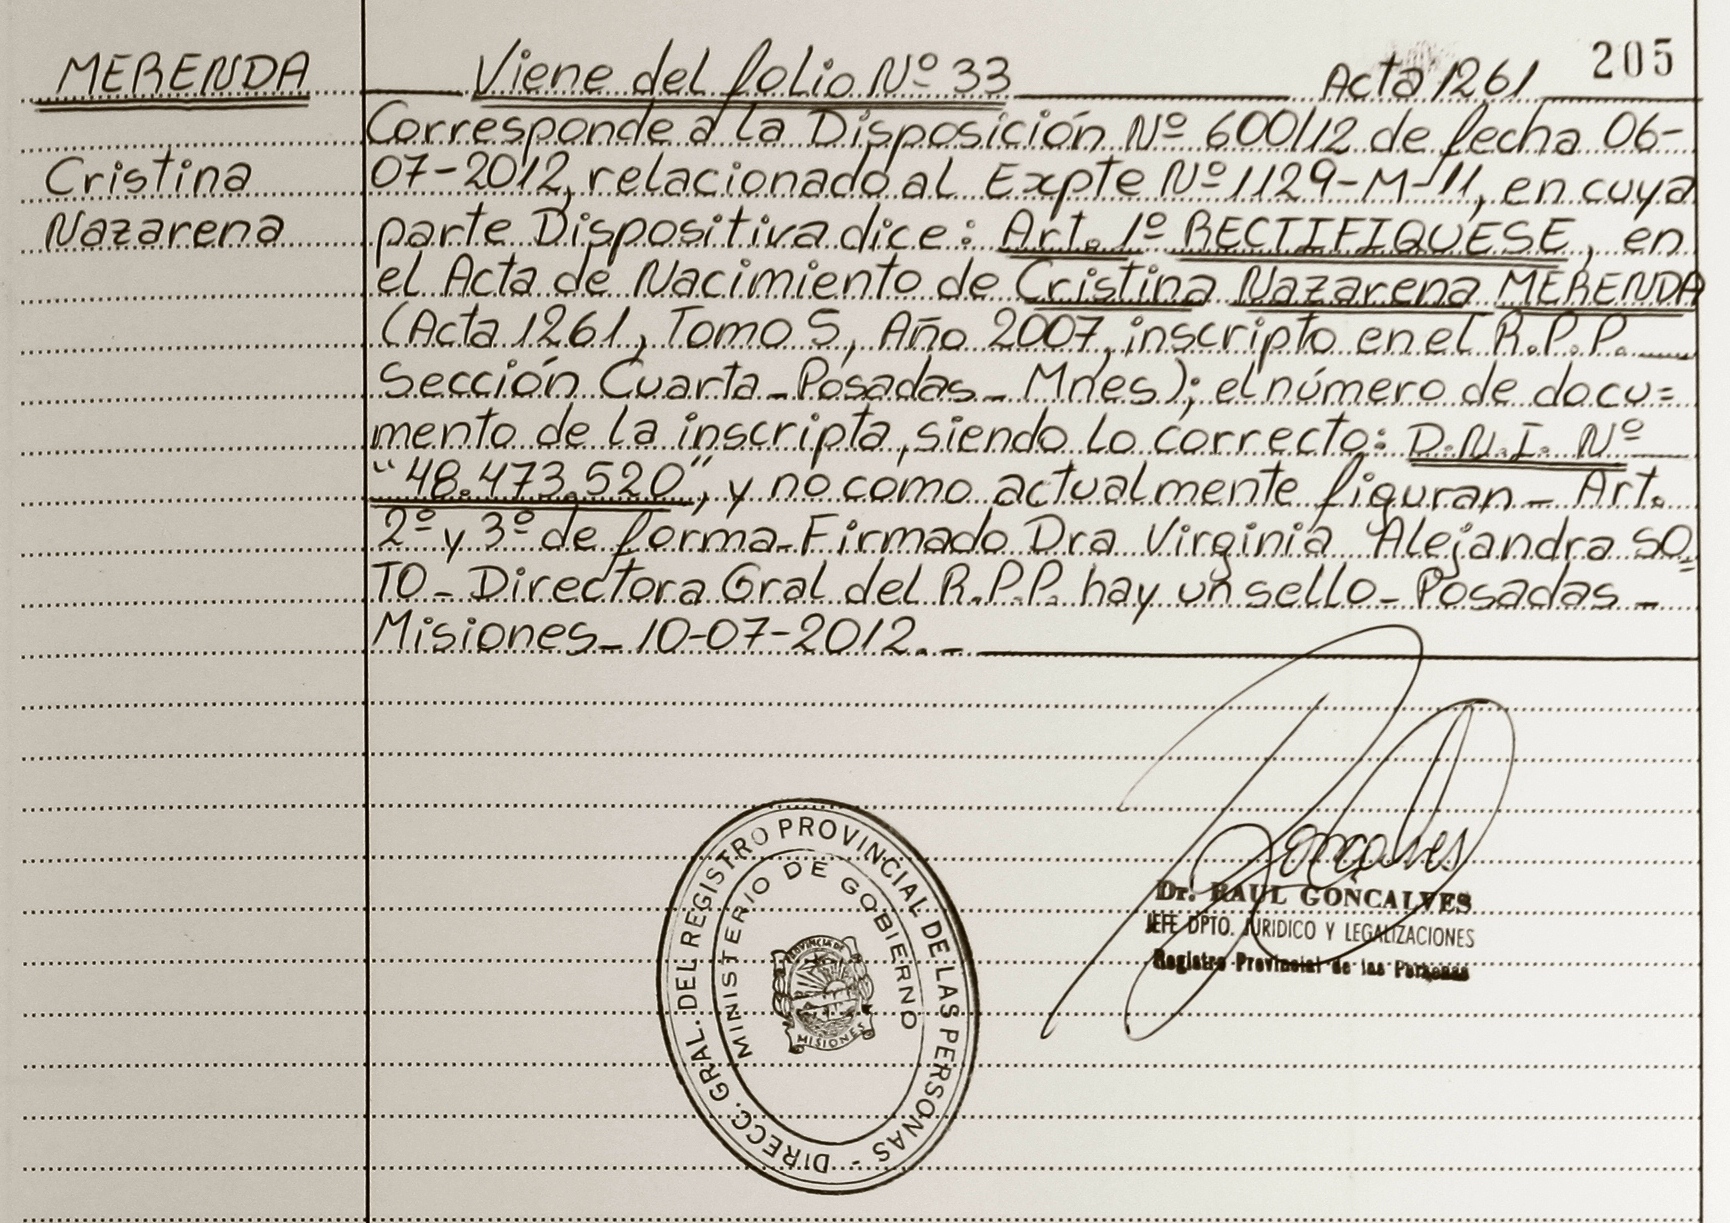 205
MERENDA Viene del folio Nº 33 Acta 1261
Corresponde a la Disposición Nº 600/12 de fecha 06-
Cristina 07-2012, relacionado al Expte Nº 1129-M-11, en cuya
Nazarena parte Dispositiva dice: Art. 1º RECTIFIQUESE, en
el Acta de Nacimiento de Cristina Nazarena MERENDA
(Acta 1261, Tomo 5, Año 2007, inscripto en el R.P.P.
Sección Cuarta - Posadas - Mnes); el número de docu=
mento de la inscripta, siendo lo correcto: D.N.I. Nº
"48.473.520", y no como actualmente figuran - Art.
2º y 3º de forma - Firmado Dra Virginia Alejandra SO=
TO - Directora Gral del R.P.P. hay un sello - Posadas -
Misiones - 10-07-2012. -
DIRECC. GRAL. DEL REGISTRO PROVINCIAL DE LAS PERSONAS -
MINISTERIO DE GOBIERNO
PROVINCIA DE
MISIONES
Goncalves
Dr. RAUL GONCALVES
JEFE DPTO. JURIDICO Y LEGALIZACIONES
Registro Provincial de las Personas